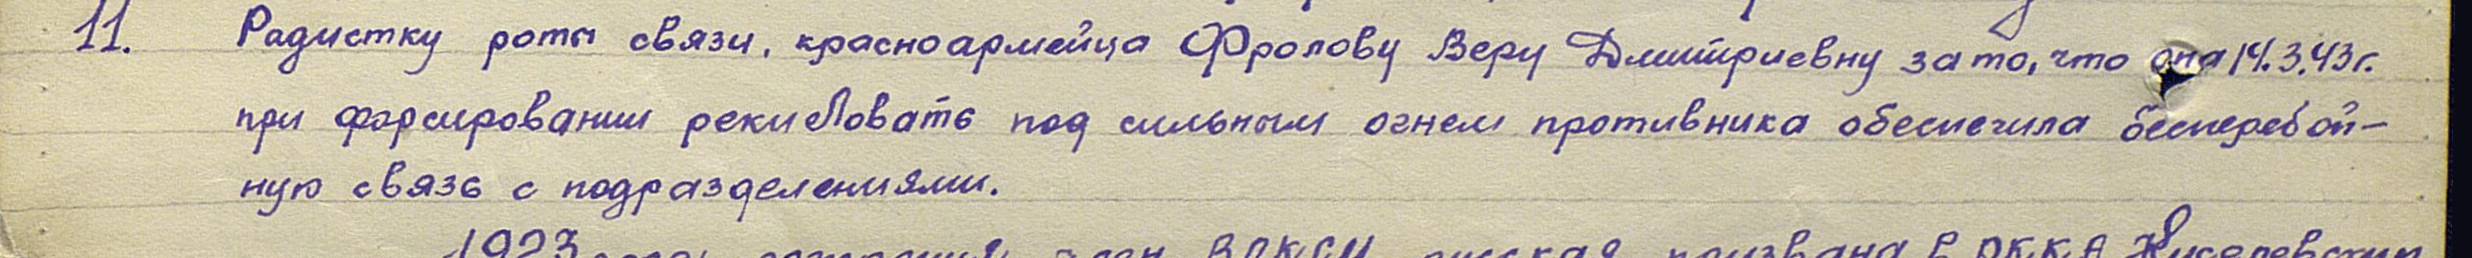 11. Радистку роты связи, красноармейца Фролову Веру Дмитриевну за то, что она 14.3.43г.
при форсировании реки Ловать под сильным огнем противника обеспечила бесперебой-
ную связь с подразделениями.
1923 года, член ВЛКСМ, русская, призвана в РККА